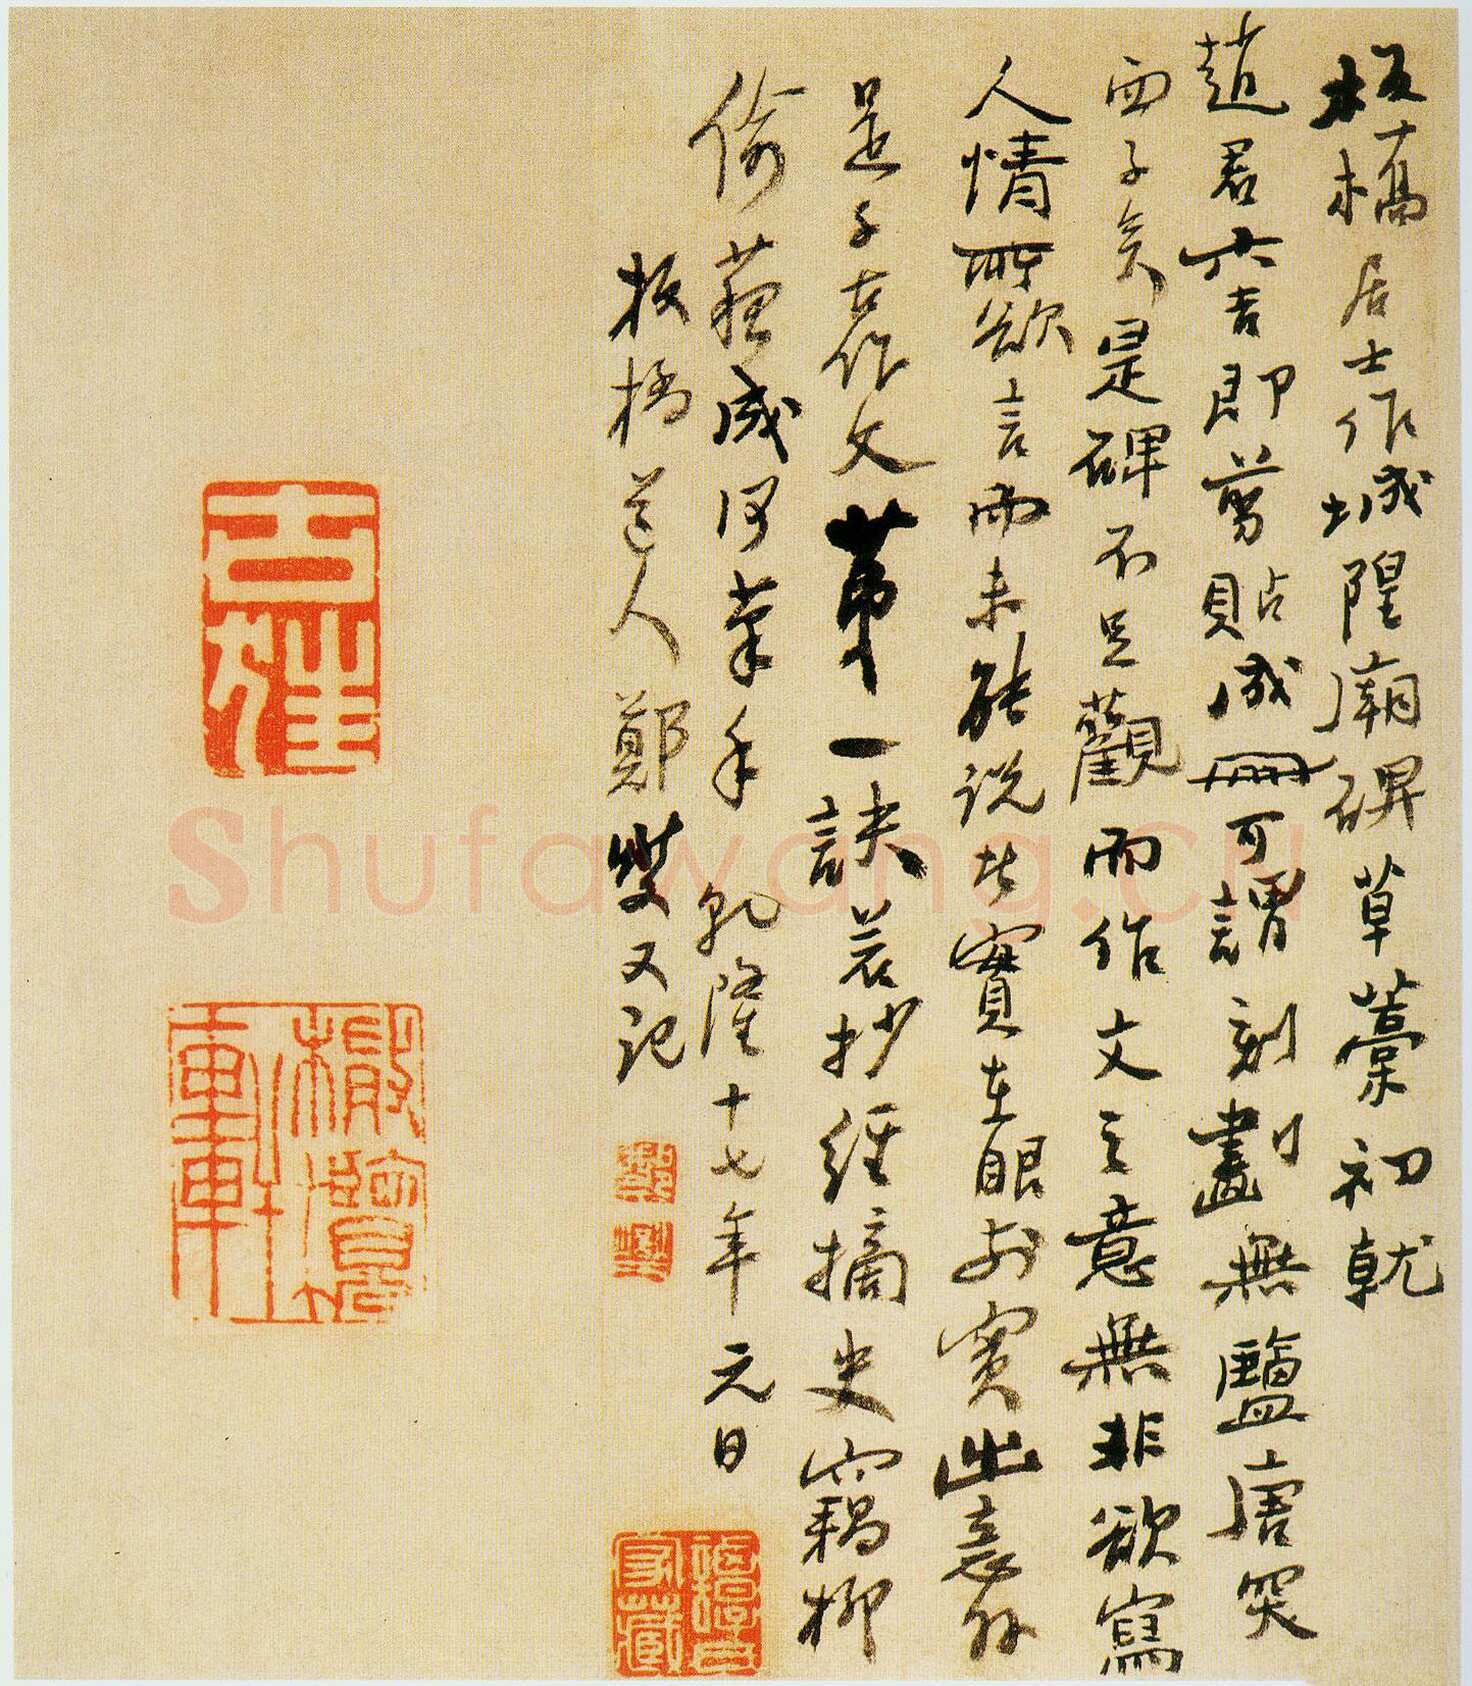 板橋居士作城隍廟碑草藁初就
趙君六吉即剪貼成冊可謂刻劃無鹽唐突
西子矣是碑不足觀而作文之意無非欲寫
人情所欲言而未能說者實在眼前實出意外
是千古作文第一訣若抄經摘史竊柳
偷蘇成何筆手 乾隆十七年元日
板橋道人鄭燮又記
家藏
Shufawang.cn